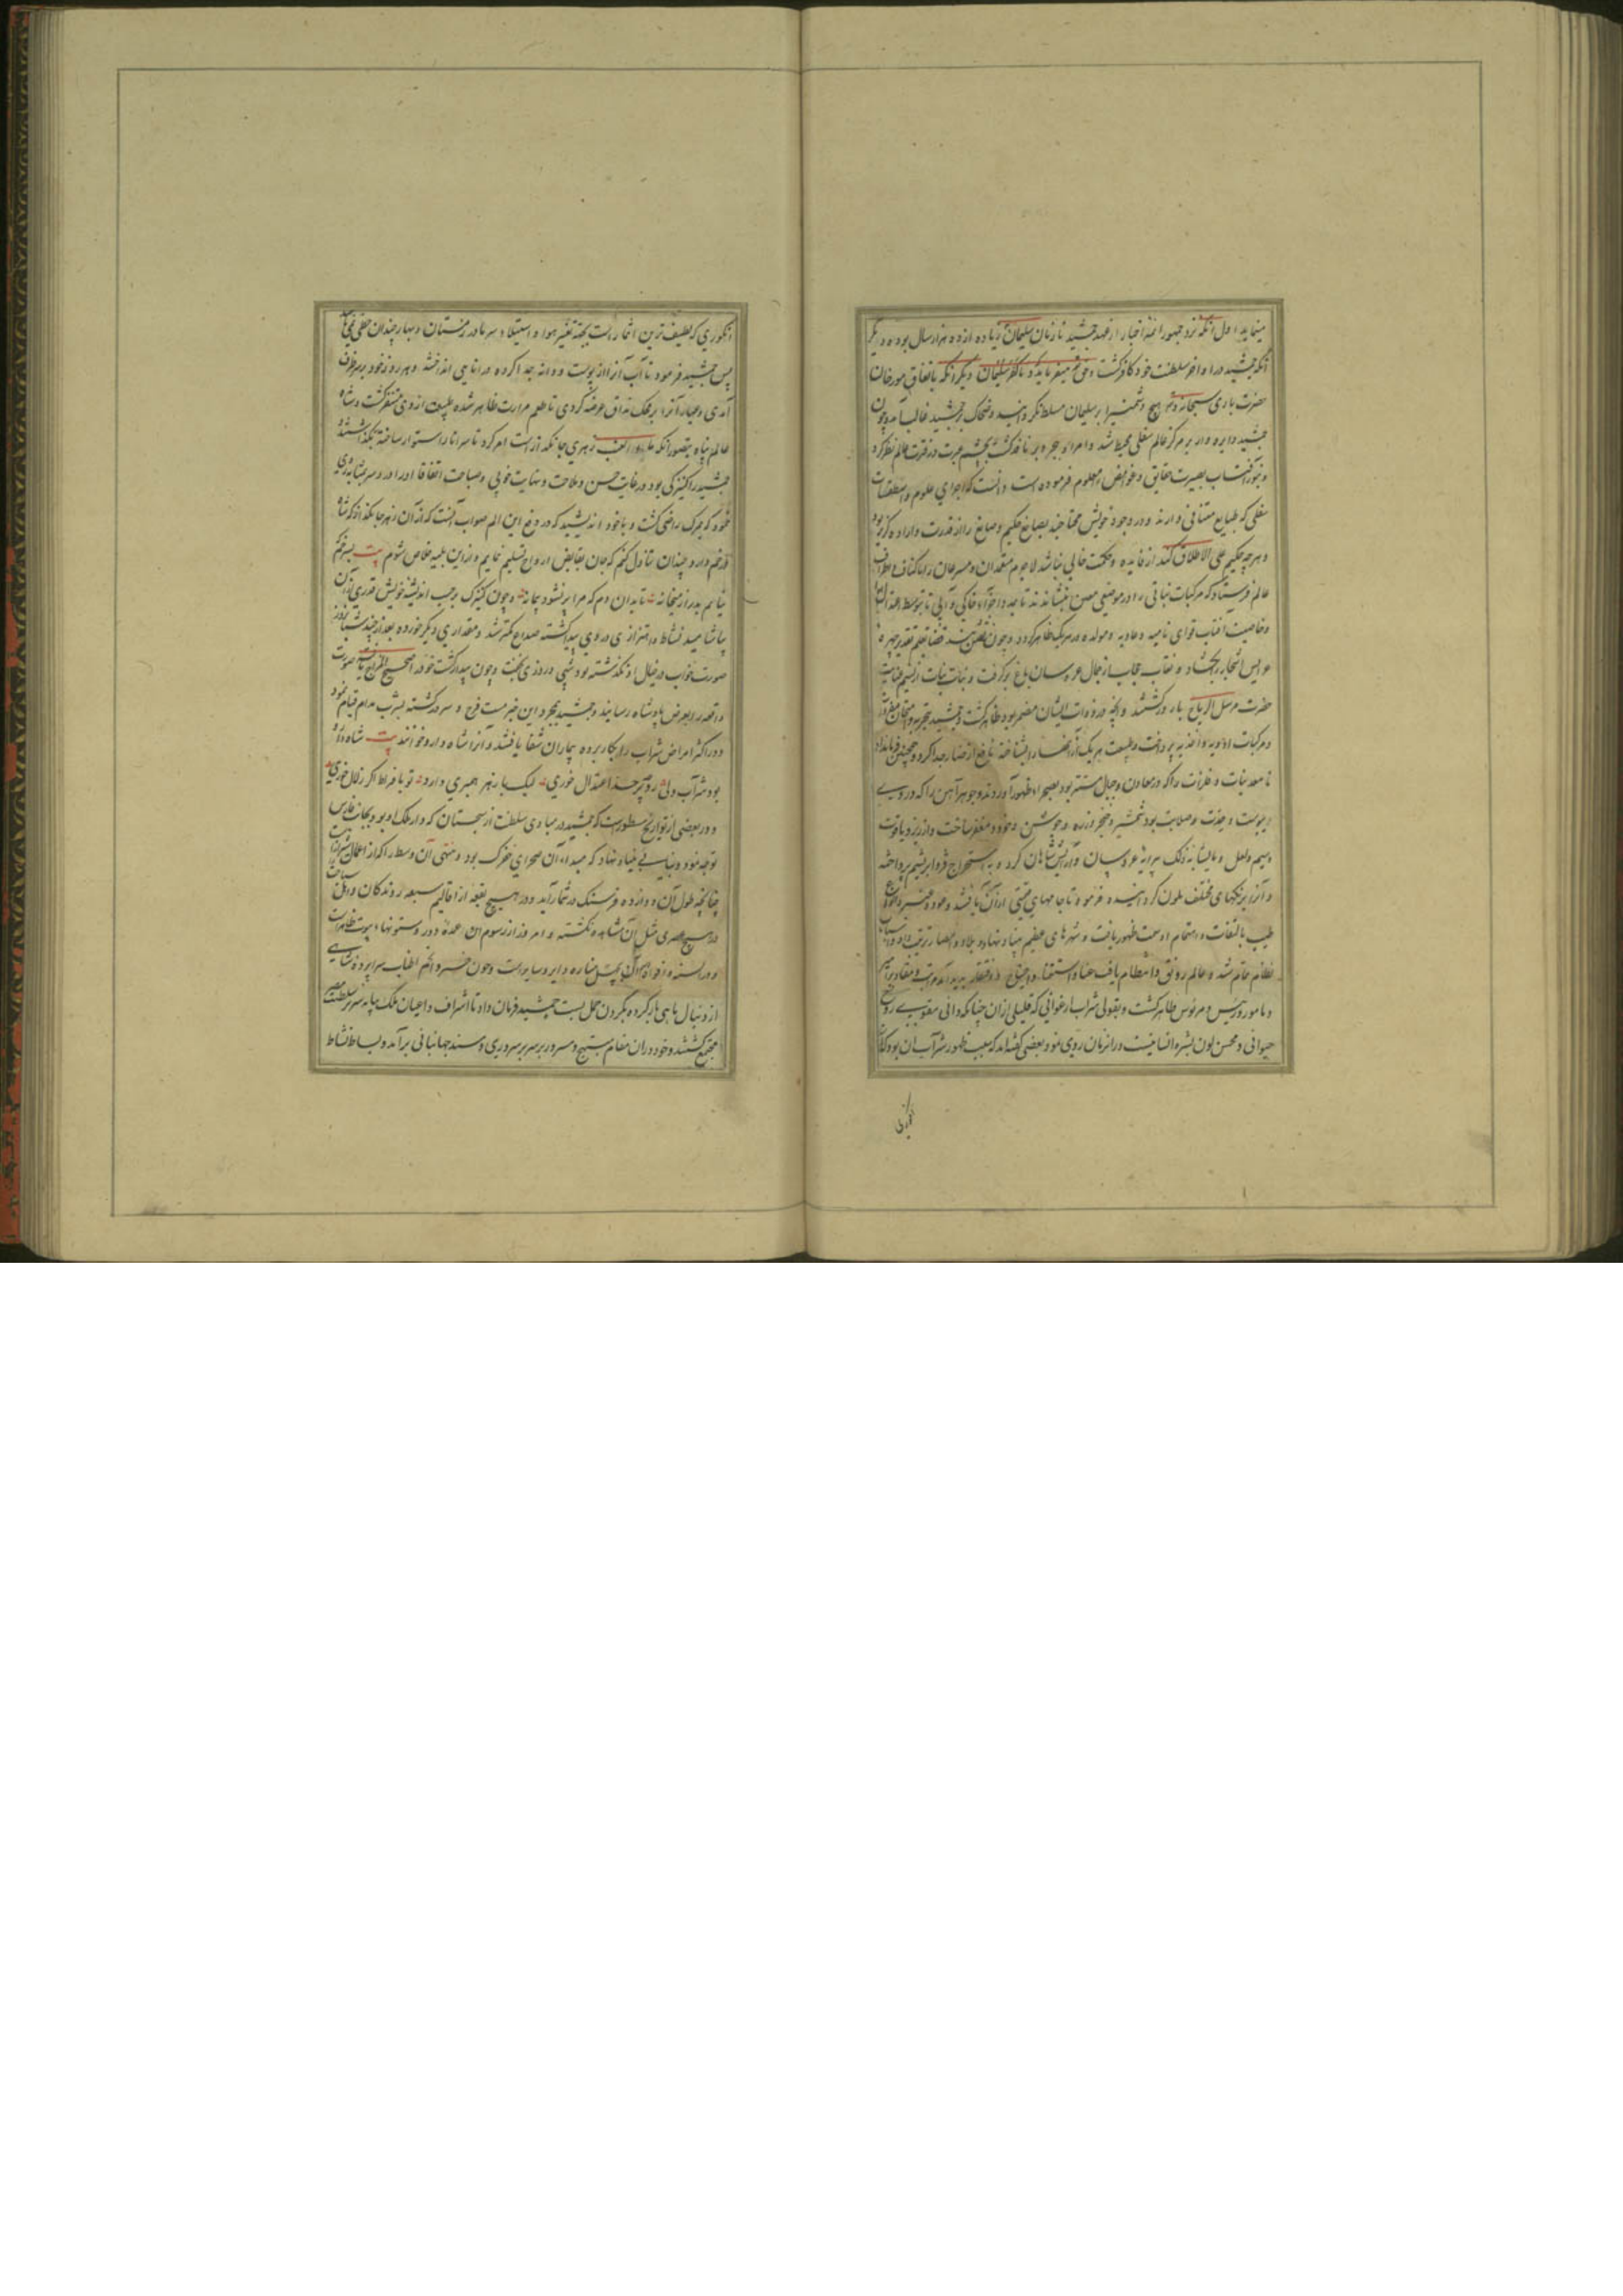 مینماید اول آنکه نزد جمهور ائمه اخبار از عهد جمشید تا زمان سلیمان زیاده از ده هزار سال بوده و دیگر
آنکه جمشید در اواخر سلطنت خود کافر گشت و حق میفرماید که و ما کفر سلیمان دیگر آنکه باتفاق مورخان
حضرت باری سبحانه و تعالی هیچ دشمنی را بر سلیمان مسلط نگردانید و ضحاک بر جمشید غالب آمد و چون
جمشید دایره وار بر مرکز عالم سفلی محیط شد و امر او بر نافذ گشت بچشم عبرت در عالم نظر کرد
و بنور بصیرت حقایق و غوامض معلوم فرموده است دانست که اجزای علوم و اسطقسات
سفلی که طبایع متنافی دارند و در وجود خویش محتاجند بصانع حکیم و صانع را از قدرت و اراده گزیر نبود
و هر چه حکیم علی الاطلاق کند از فایده و حکمت خالی نباشد لاجرم معتمدان و مسرعان را باکناف و اطراف
عالم فرستاد که مرکبات نباتی را در موضعی معین بنشاندند تا بمدد اجزاء خاکی و آبی تا بتوسط
و خاصیت آفتاب قوای نامیه و غاذیه و مولده در هر یک ظاهر گردد و چون قضا بقلم تقدیر چهره
عرایس اشجار را بگشاد و نقاب حجاب از جمال عروسان باغ برگرفت و بنات نبات از نسیم عنایت
حضرت مرسل الریاح بارور گشتند و آنچه در ذوات ایشان مضمر بود ظاهر گشت و جمشید بتجربه و امتحان مفردات
و مرکبات ادویه و اغذیه پرداخت و طبیعت هر یک از آنها را شناخته نافع از ضار جدا کرد و همچنین فرمان داد
تا معدنیات و فلزات را که در معادن و جبال مستتر بود بصحراء ظهور آوردند و جوهر آهن را که در وی
یبوست و حدت و صلابت بود شمشیر و خنجر و زره و جوشن و خود و مغفر ساخت و از زر و یاقوت
و سیم و لعل و مایشابه ذلک پیرایه عروسان و آرایش شاهان کرد و باستخراج قز و ابریشم پرداخته
و آنرا برنگهای مختلف ملون گردانید و فرمود تا جامهای قیمتی از آن بافتند و عود و عنبر و انواع
طیب بالتفات و اهتمام او سمت ظهور یافت و شهرهای عظیم بنیاد نهاد و بلاد و امصار ترتیب داد و اسباب
نظام تمام شد و عالم رونق و انتظام یافت غنا و استغنا و احتیاج و افتقار پدید آمد
و مامور و رئیس و مرئوس ظاهر گشت و بقولی شراب ارغوانی که قلیلی از آن چنانکه دانی مقوی روح
حیوانی و محسن لون بشره انسانیست در آن زمان روی نمود و بعضی گفته اند که سبب ظهور شراب آن بود که
انگوری
انگوری که لطیف ترین اثمار است بجهة تغییر هوا و استیلاء سرما در زمستان و بهار چندان حظی نمی
پس جمشید فرمود تا آب آنرا از پوست و دانه جدا کرده در اناهی انداختند و هر روز خود بر سر ظرف
آمدی و عیار آنرا بر محک مذاق عرضه کردی تا طعم مرارت ظاهر شده طبیعت از وی متنفر گشت و شاه
عالم پناه بتصور آنکه زهری جانگداز است امر کرد تا سر انا را استوار ساخته بگذاشتند
جمشید را کنیزکی بود در غایت حسن و ملاحت و نهایت خوبی و صباحت اتفاقا او را درد سر
که بمرگ راضی گشت و با خود اندیشید که در دفع این الم صواب آنست که از آن زهر جانگداز که شاه
در خم دارد چندان تناول کنم که جان بقابض ارواح تسلیم نمایم و از این بلیه خلاص شوم بیت
نیایم بدر از میخانه تا بدان دم که مرا پر نشود پیمانه و چون کنیزک بر حسب اندیشه خویش قدری از آن
بیاشامید نشاط و اهتزازی در وی پیدا گشته صداع کمتر شد و مقداری دیگر خورده بعد از چند شبانروز
صورت خواب در خیال او نگذشته بود شبی و روزی بخفت و چون بیدار گشت خود را صحیح المزاج یافت صورت
واقعه را بعرض پادشاه رسانید و جمشید بمجرد این خبر مست فرح و سرور گشته بشرب مدام قیام نمود
و در اکثر امراض شراب را بکار برده بیماران شفا یافتند و آنرا شاه دارو خواندند بیت شاه دارو
بود شراب ولی ز حد اعتدال خوری لیک با زهر همبری دارد تو بافراط اگر زلال خوری
و در بعضی از تواریخ مسطور است که جمشید در مبادی سلطنت از سجستان که دار ملک او بود بجانب فارس
توجه نمود و بنیاد نهاد که مبداء آن صحرای خفرک بود و منتهی آن وسط را که از اعمال شیراز است
چنانچه طول آن دوازده فرسنگ در شمار آید و در هیچ بقعه از اقالیم سبعه روندگان
در هیچ عصری مثل آن مشاهده نگشته و امروز از رسوم آن عده دور و ستونها
و در السنه و افواه بچهل مناره دایر و سایر است و چون خسرو انجم اطناب سراپرده شاهی
از دنبال ماهی باز کرده بگردن حمل بست جمشید فرمان داد تا اشراف و اعیان ملک بپایه سریر سلطنت مصیر
مجتمع گشتند و خود در آن مقام مبتهج و مسرور بر سریر سروری و مسند جهانبانی برآمد و بساط نشاط